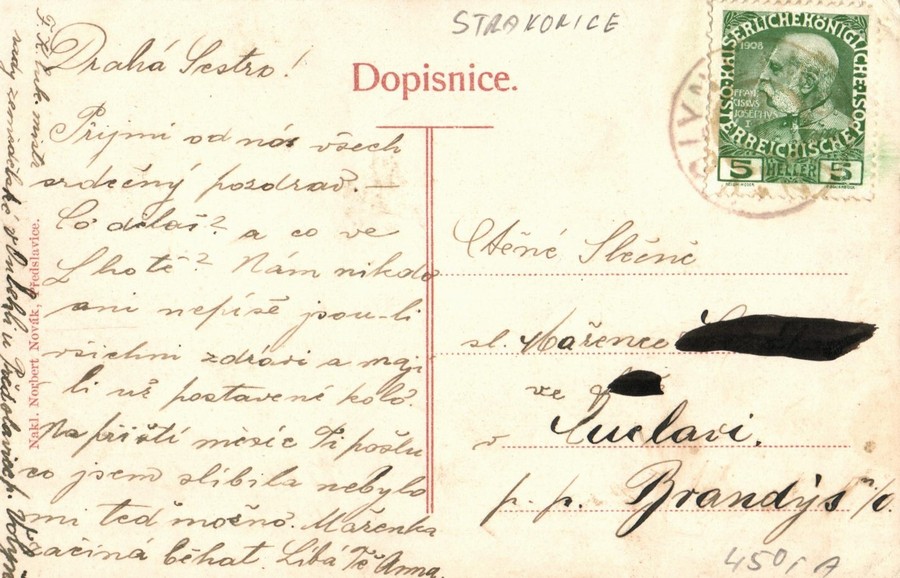 STRAKONICE
Dopisnice.
Drahá Sestro!
Přijmi od nás všech
srdečný pozdrav. —
Co děláš? a co ve
Lhotě? Nám nikdo
ani nepíše jsou-li
všichni zdrávi a mají
li už postavené kolo.
Na příští měsíc Ti pošlu
co jsem slíbila nebylo
mi teď možno. Mařenka
začíná běhat. Líbá Tě Anna.
Ctěné Slečně
sl. Mařence
ve
v
p. p. Brandýs n/O.
Nakl. Norbert Novák, Předslavice.
KAISERLICHE KÖNIGLICHE ÖSTERREICHISCHE POST
1908
FRANCISCUS JOSEPHUS I
5 HELLER 5
450,-